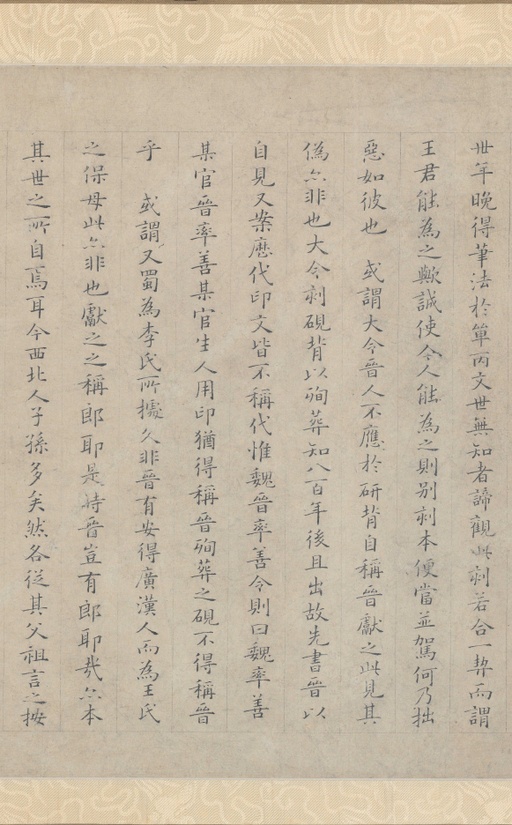 世年晚得筆法於單丙文世無知者諦觀此刻若合一契而謂
王君能為之歟誠使今人能為之則别刻本便當並駕何乃拙
惡如彼也 或謂大令晉人不應於研背自稱晉獻之此見其
偽亦非也大令刻硯背以殉葬知八百年後且出故先書晉以
自見又案歷代印文皆不稱代惟魏晉率善令則曰魏率善
某官晉率善某官生人用印猶得稱晉殉葬之硯不得稱晉
乎 或謂又蜀為李氏所據久非晉有安得廣漢人而為王氏
之保母此亦非也獻之之稱郎耶是時晉豈有郎耶哉亦本
其世之所自焉耳今西北人子孫多矣然各從其父祖言之按